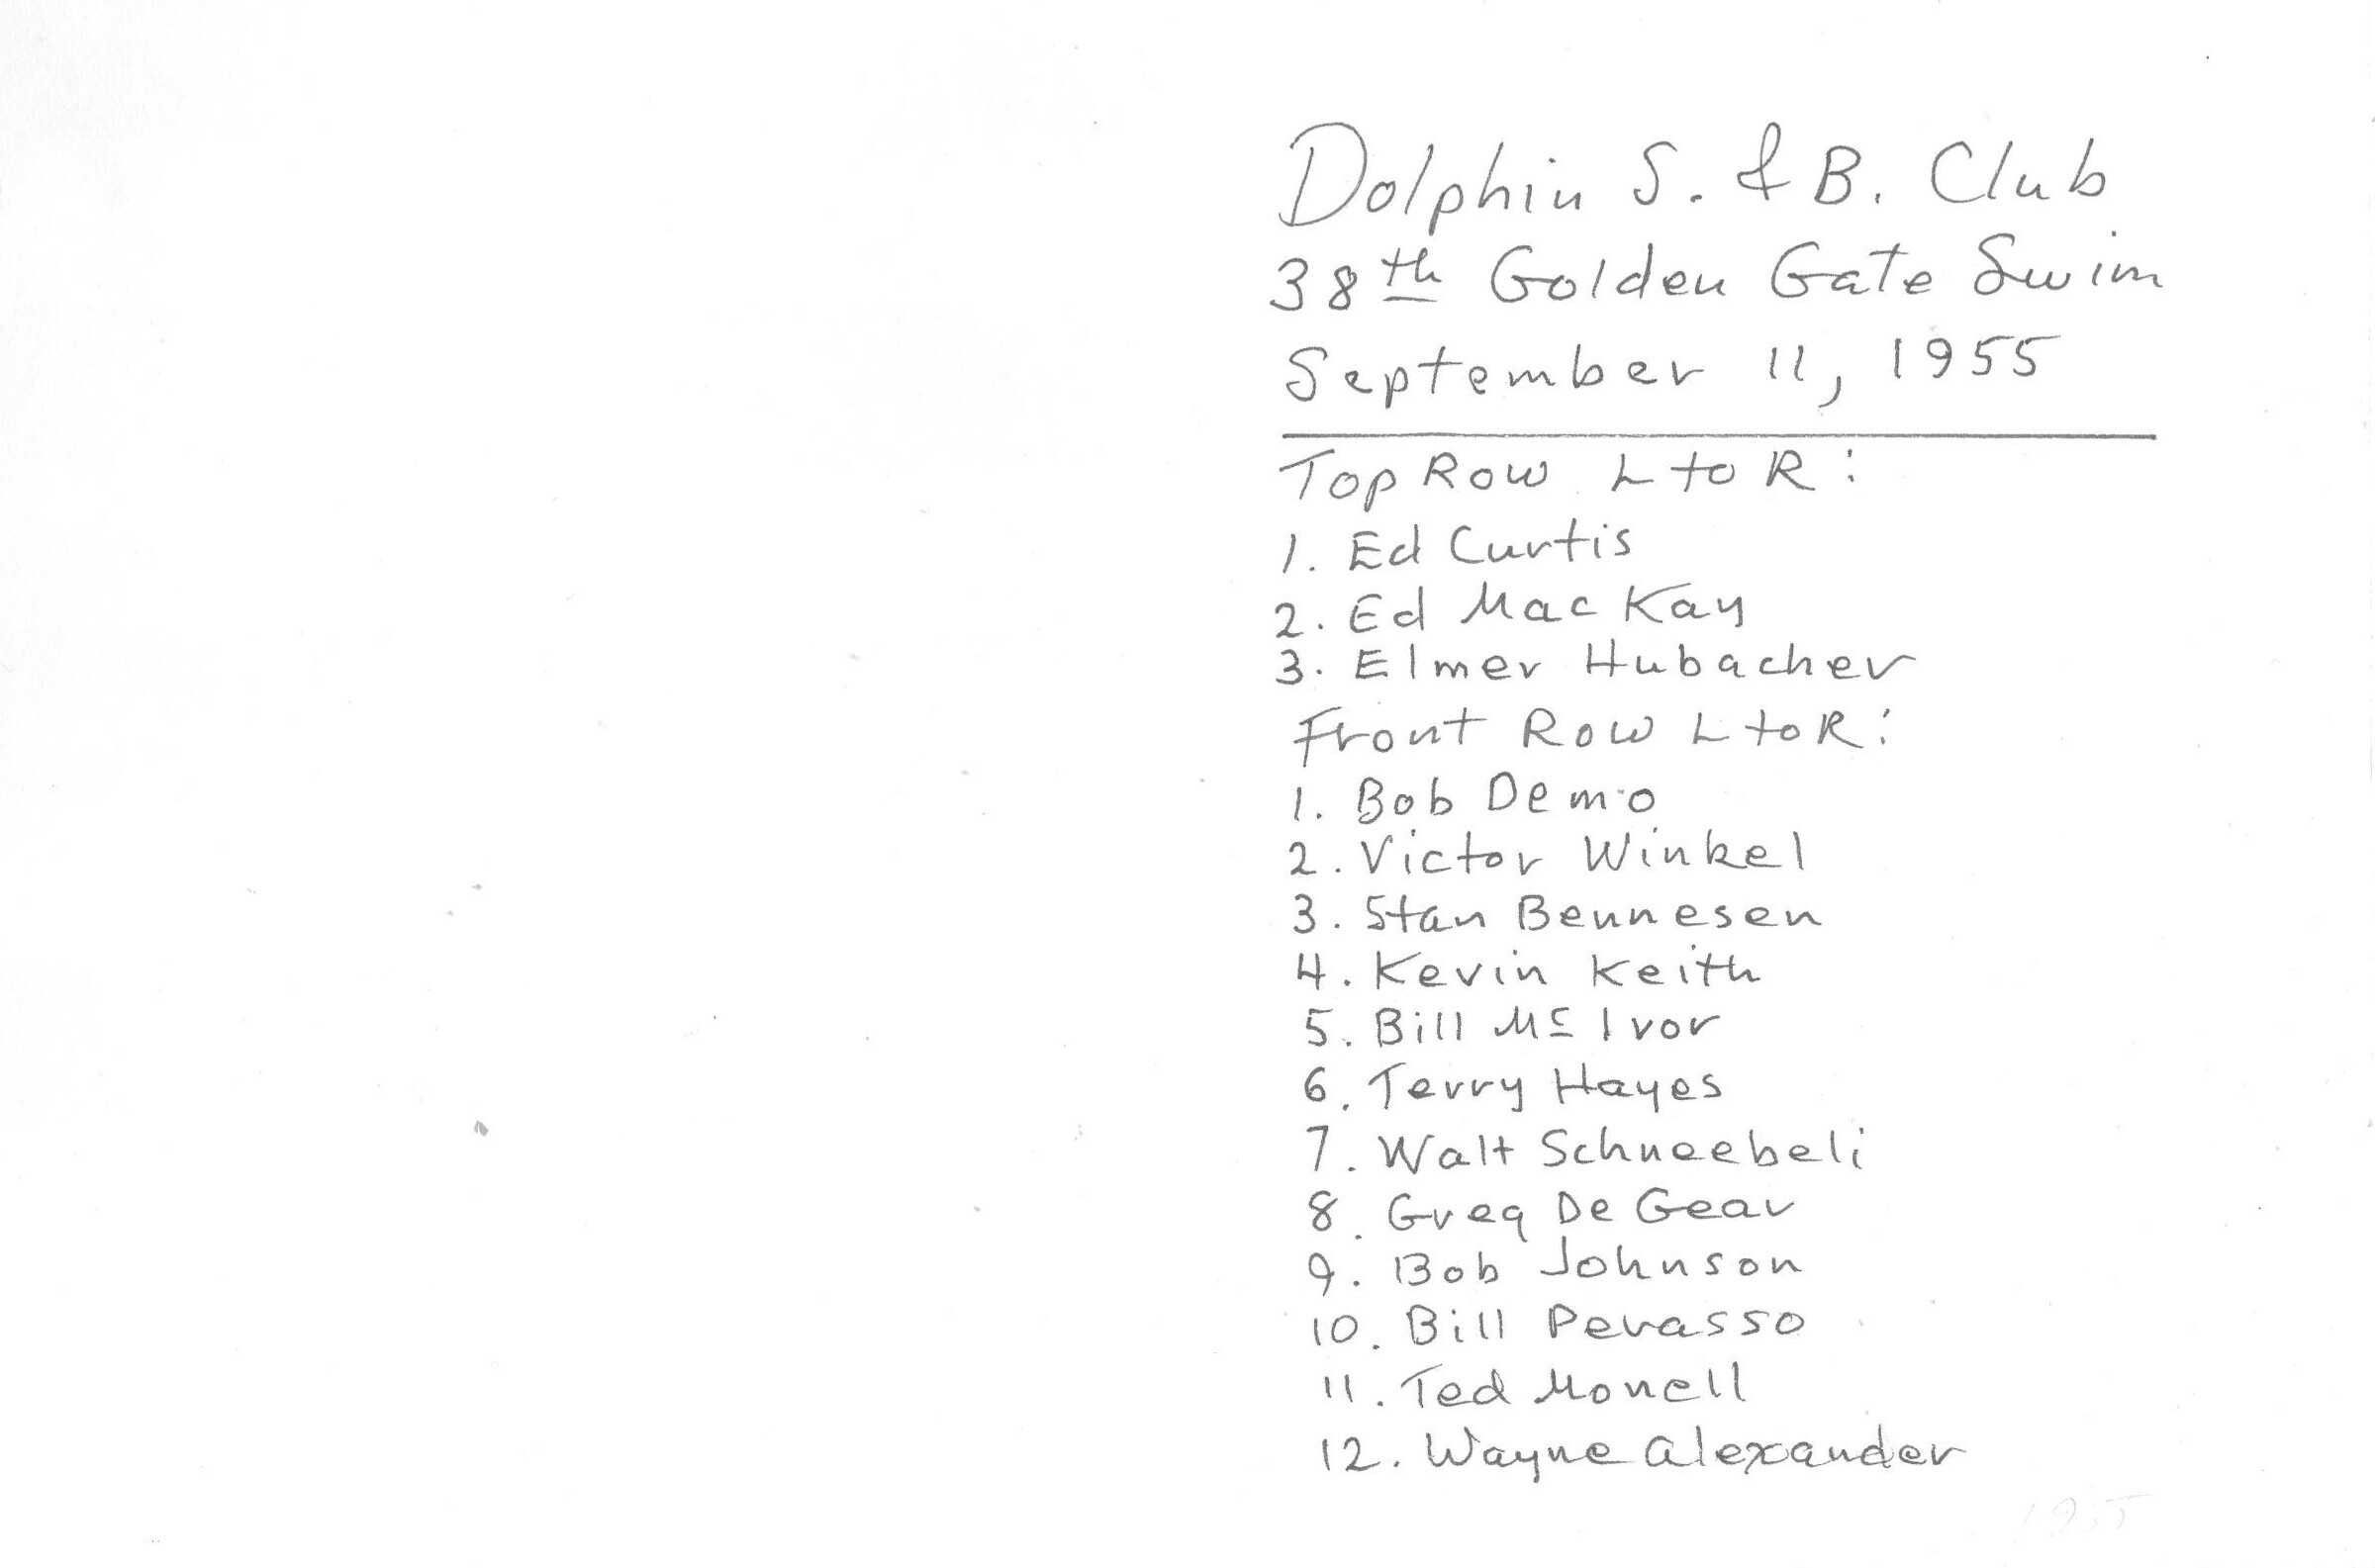 Dolphin S. & B. Club
38th Golden Gate Swim
September 11, 1955
Top Row L to R:
1. Ed Curtis
2. Ed MacKay
3. Elmer Hubacher
Front Row L to R:
1. Bob Demo
2. Victor Winkel
3. Stan Bennesen
4. Kevin Keith
5. Bill Mc Ivor
6. Terry Hayes
7. Walt Schneebeli
8. Greg De Gear
9. Bob Johnson
10. Bill Perasso
11. Ted Monell
12. Wayne Alexander